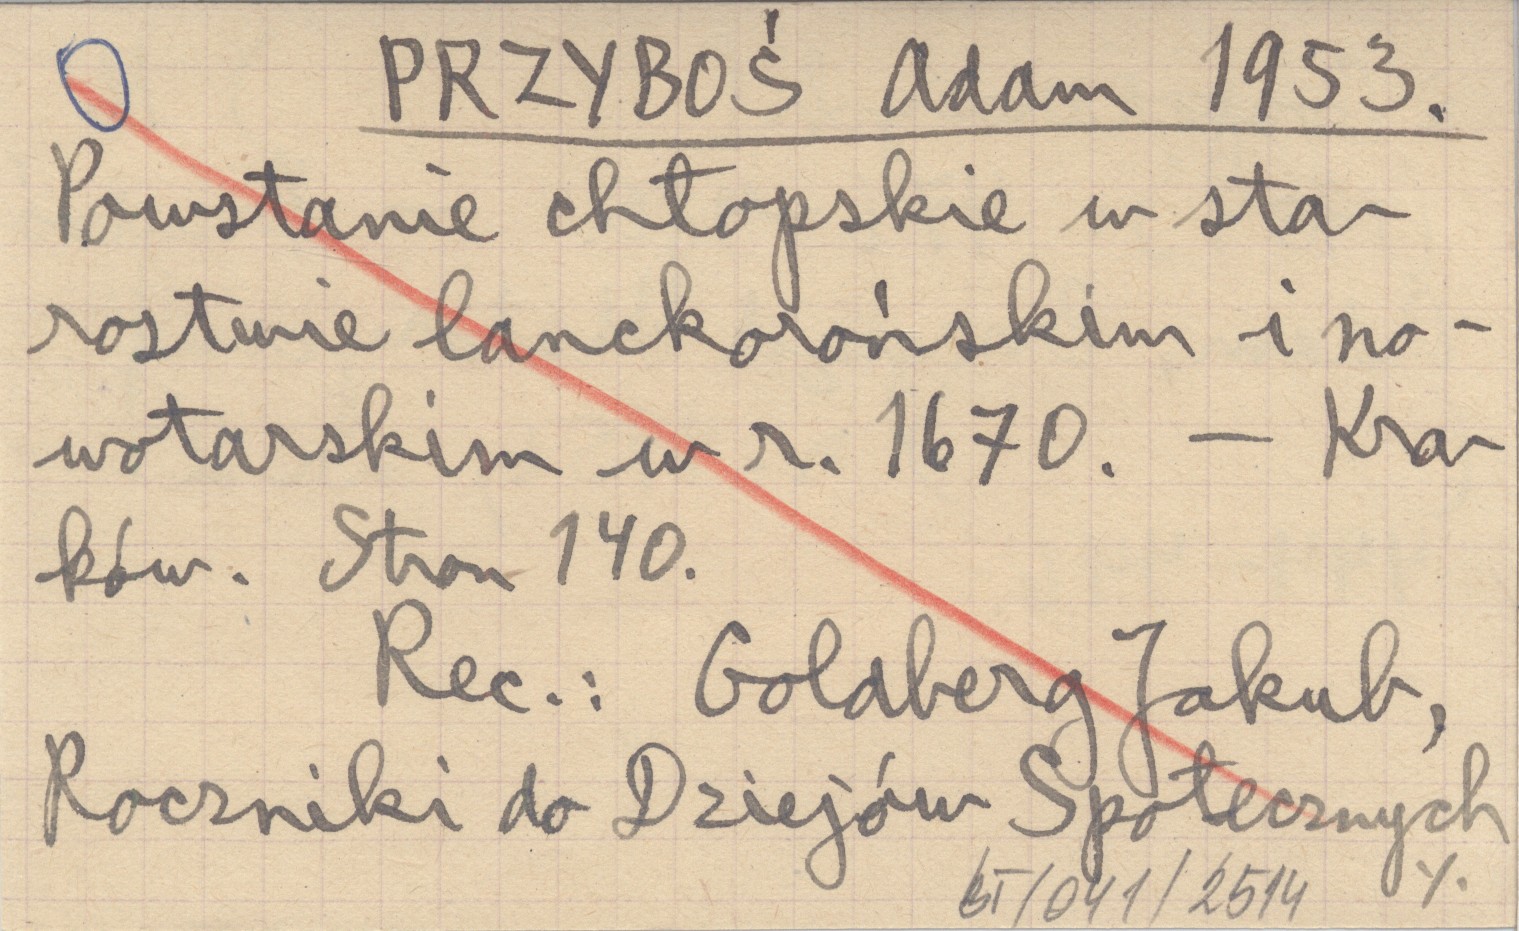 PRZYBOŚ Adam 1953.
Powstanie chłopskie w sta-
rostwie lanckorońskim i no-
wotarskim w r. 1670. — Kra-
ków. Stron 140.
Rec.: Goldberg Jakub,
Roczniki do Dziejów Społecznych
BT/041/2514 /.